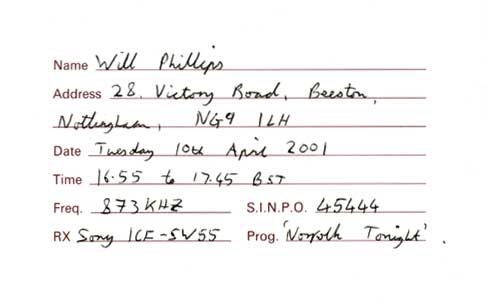 Name Will Phillips
Address 28, Victory Road, Beeston,
Nottingham, NG9 1LH
Date Tuesday 10th April 2001
Time 16.55 to 17.45 BST
Freq. 873 KHZ S.I.N.P.O. 45444
RX Sony ICF-SW55 Prog. 'Norfolk Tonight'.